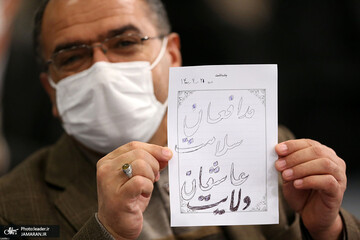 مدافعان
سلامت
عاشقان
ولایت
JAMARAN.IR